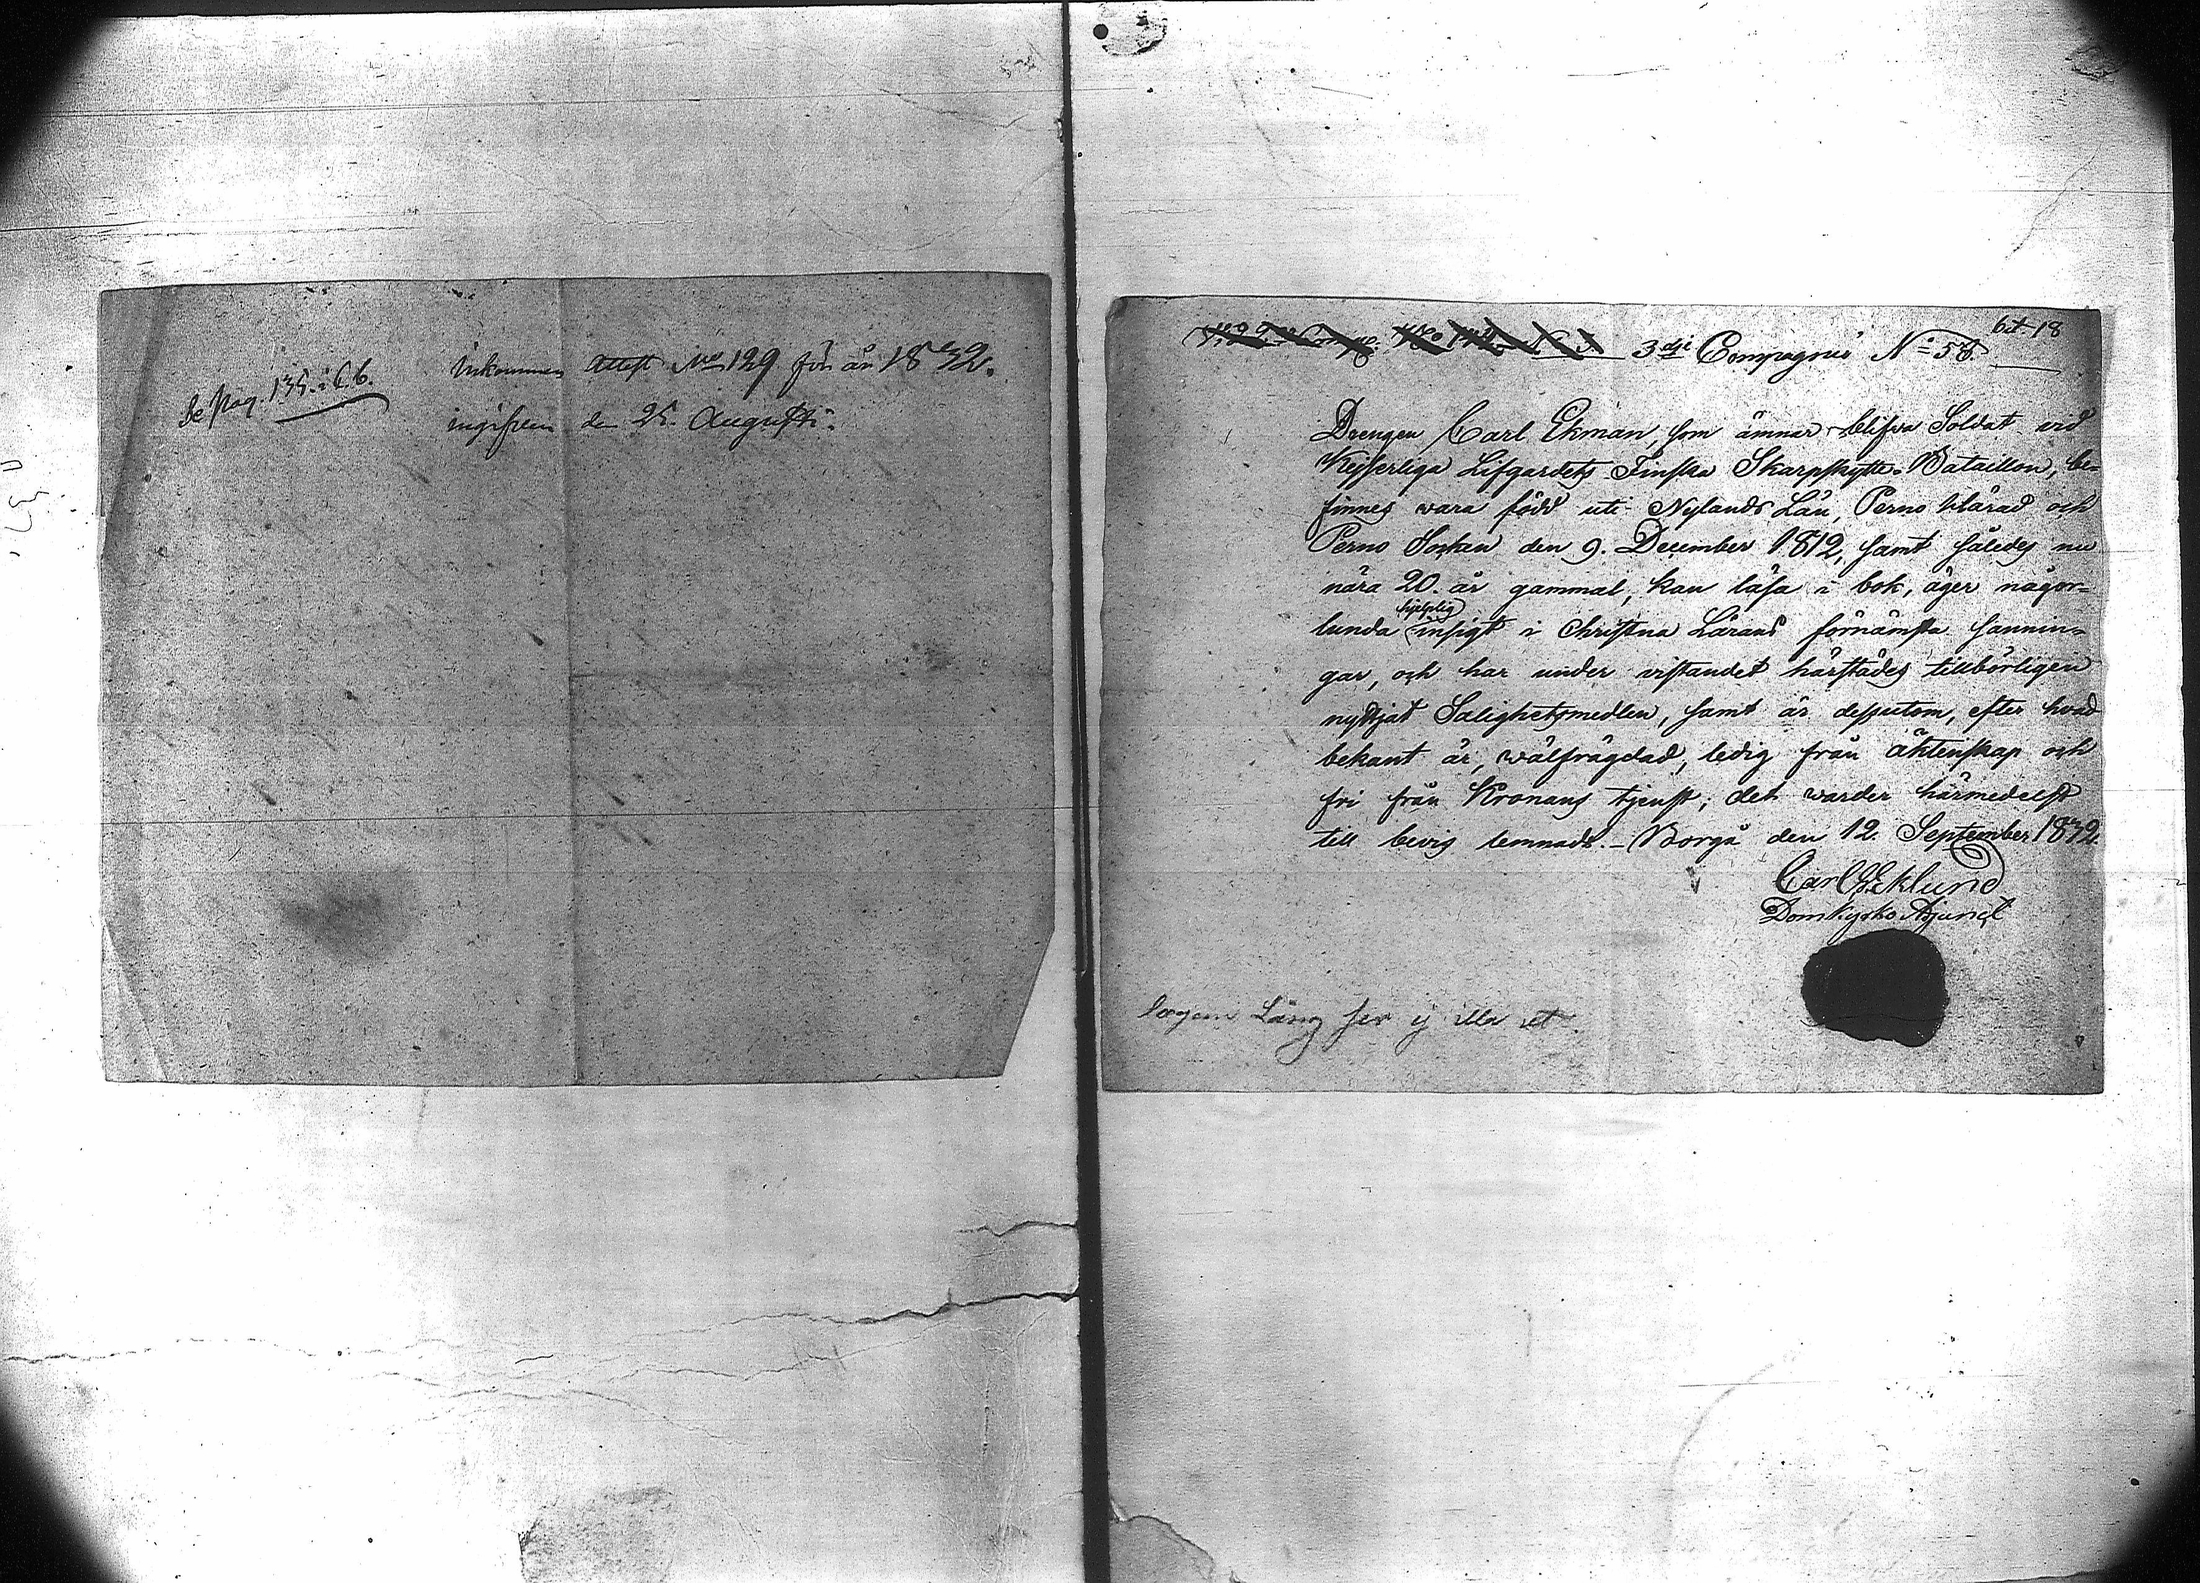 Se pag. 135. i C. b.
Inkommen attest No 129 för år 1832.
ingifven den 25. Augusti.
bit. 18
3dje Compagnie N:o 58.
Drengen Carl Ekman, som ämnar blifva Soldat vid
Kejserliga Lifgardets Finska Skarpskytte-Bataillon, be-
finnes wara född uti Nylands Län, Perno härad och
Perno Sockn den 9. December 1812, samt således nu
nära 20. år gammal, kan läsa i bok, äger någor-
lunda hjelplig insigt i Christna Lärans förnämsta sannin-
gar, och har under vistandet härstädes tillbörligen
nyttjat Salighetsmedlen, samt är dessutom, efter hvad
bekant är, wälfrägdad, ledig från äktenskap och
fri från Kronans tjenst; det warder härmedelst
till bevis lemnadt. - Borgå den 12. September 1832.
Carl G. Eklund
Domkyrko Adjunct
Läng ser ej illa ut